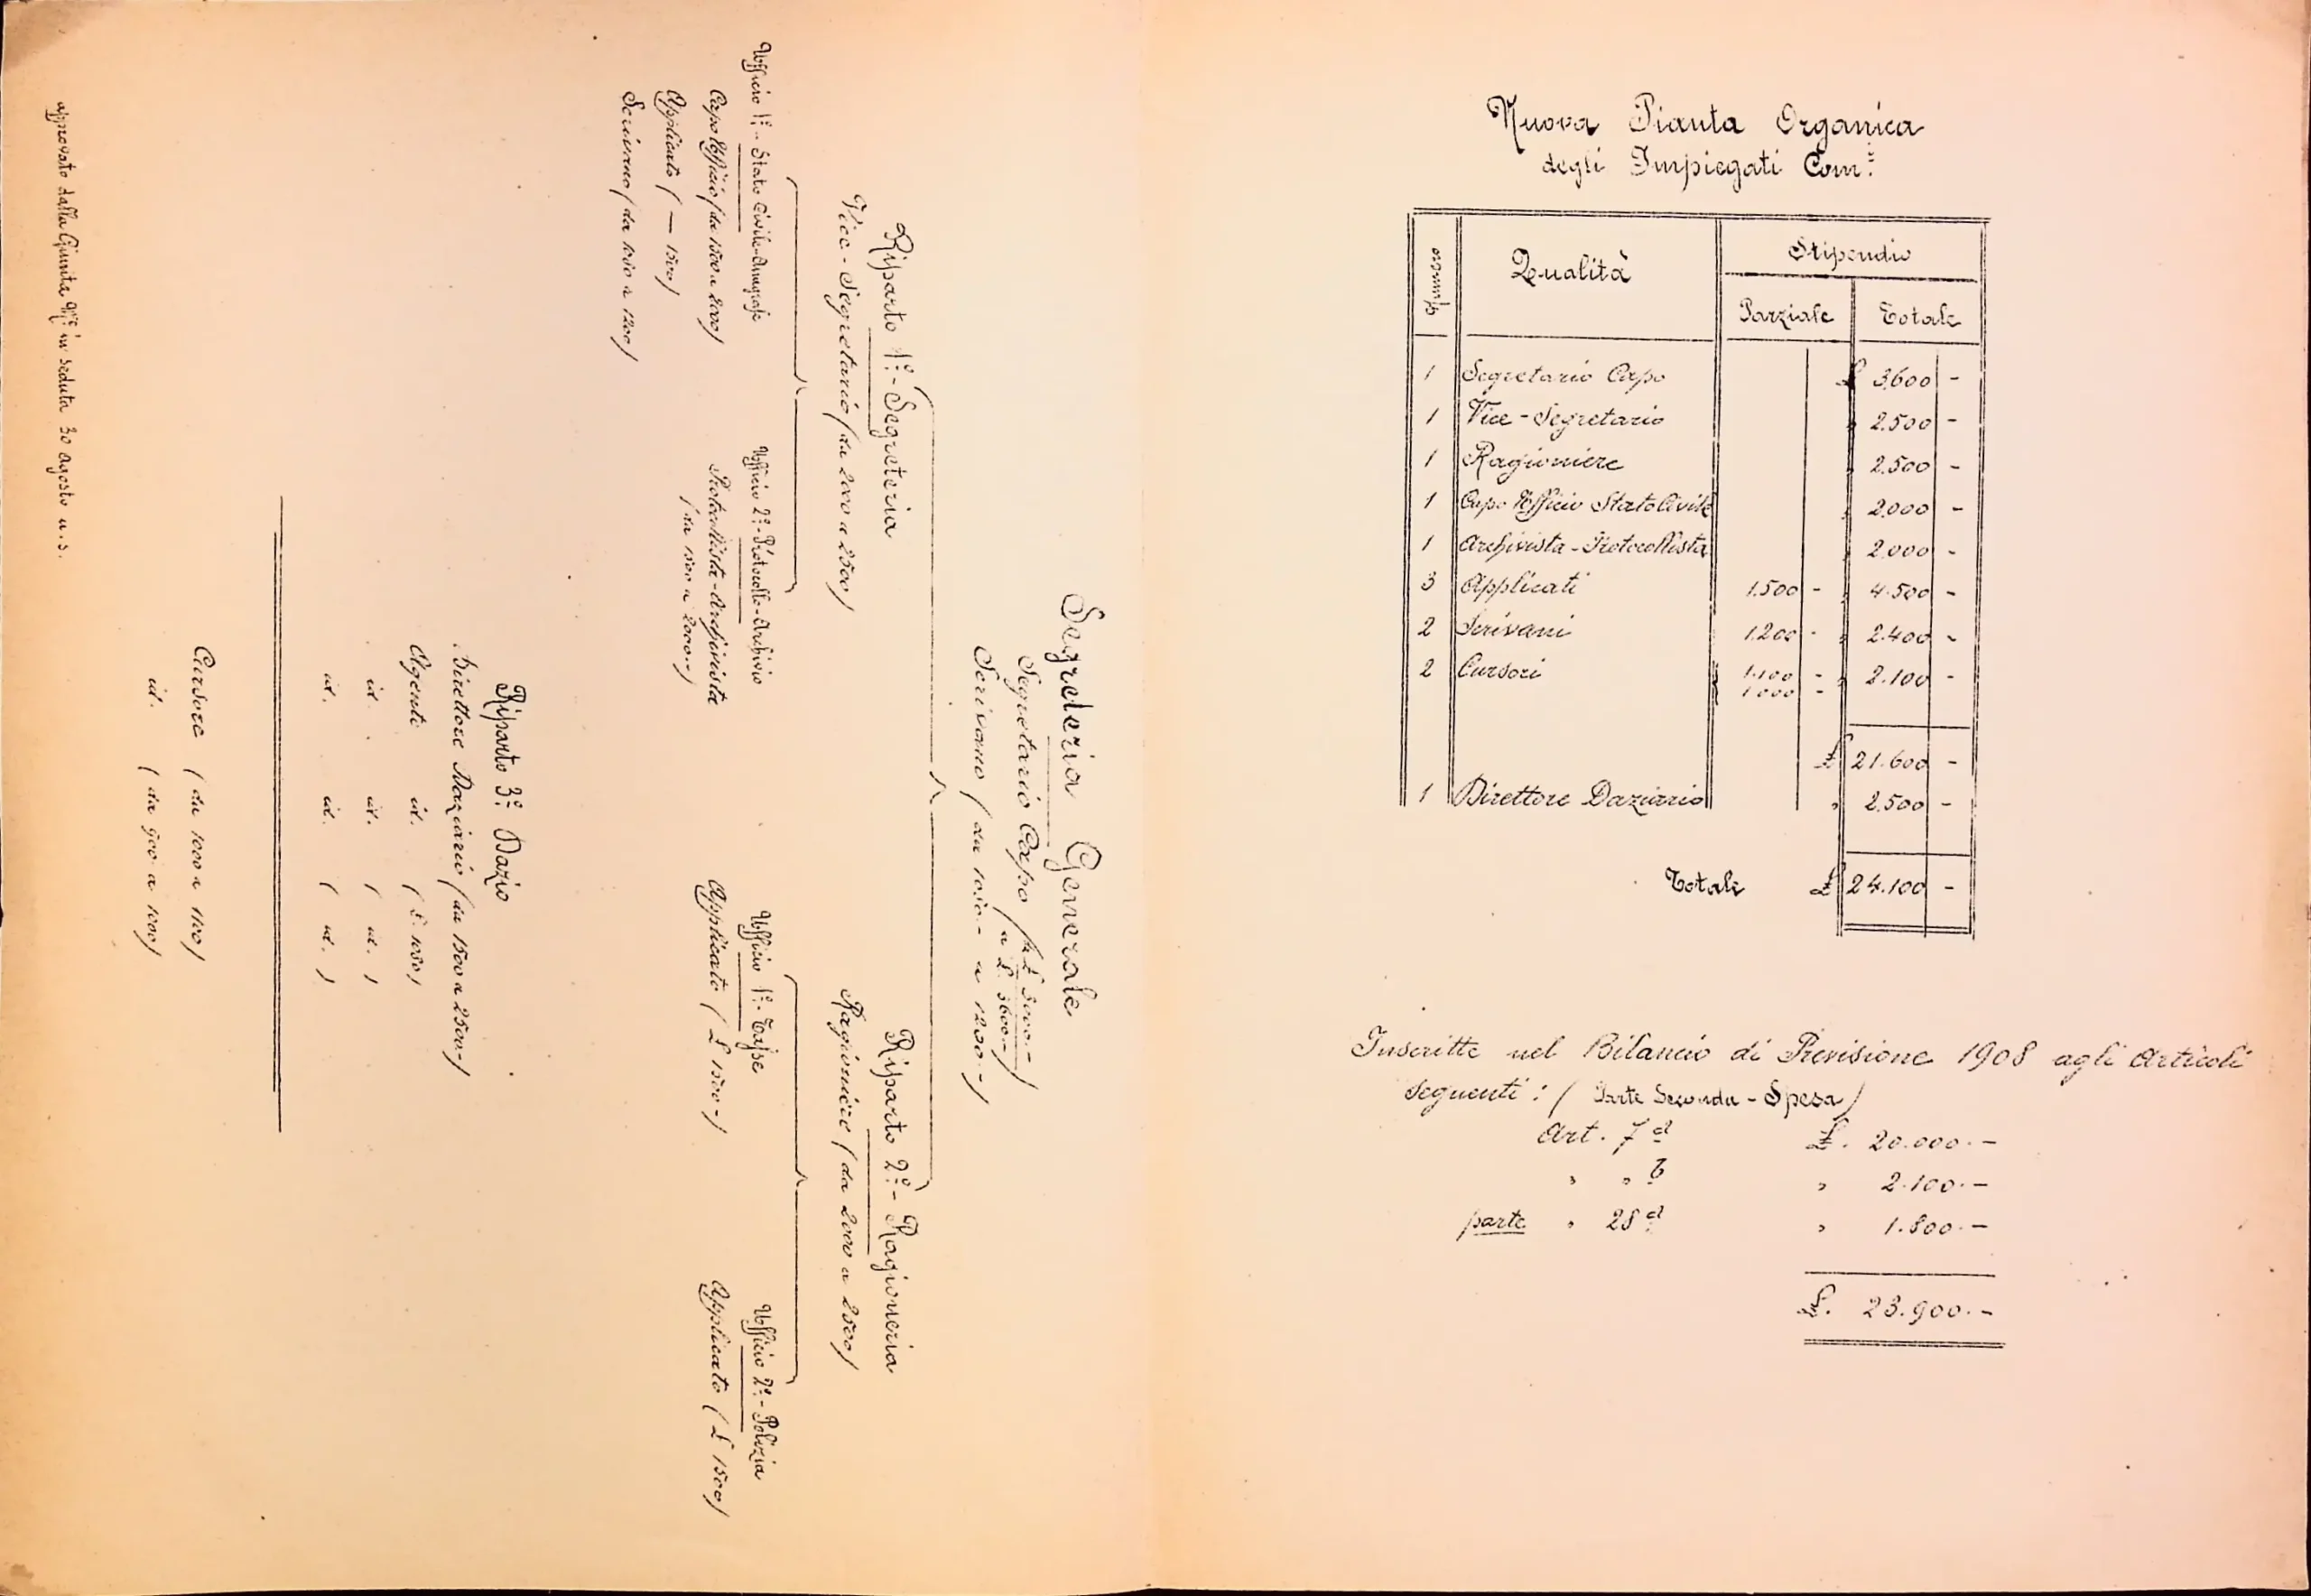 Segreteria Generale
Segretario Capo (da £ 3000.-)
a £ 3600.-)
Scrivano (da 1080.- a 1200.-)
Riparto 1º. - Segreteria
Vice-Segretario (da 2000 a 2500)
Riparto 2º. - Ragioneria
Ragioniere (da 2000 a 2500)
Ufficio 1º. - Stato Civile-Anagrafe
Capo Ufficio (da 1500 a 2000)
Applicato ( — 1500)
Scrivano (da 1080 a 1200)
Ufficio 2º. - Protocollo-Archivio
Protocollista-Archivista
(da 1500 a 2000.-)
Ufficio 1º. - Tasse
Applicato (£ 1500-)
Ufficio 2º. - Polizia
Applicato (£ 1500)
Riparto 3º. Dazio
Direttore Daziario (da 1500 a 2500-)
Agente id. (£. 1080)
id. id. ( id. )
id. id. ( id. )
Cursore (da 1000 a 1100)
id. (da 900 a 1000)
approvato dalla Giunta in seduta 30 agosto u.s.
Nuova Pianta Organica
degli Impiegati Com.li
Numero Qualità Stipendio
Parziale Totale
1 Segretario Capo £ 3.600 -
1 Vice-Segretario " 2.500 -
1 Ragioniere " 2.500 -
1 Capo Ufficio Stato Civile " 2.000 -
1 Archivista-Protocollista " 2.000 -
3 Applicati 1.500 - " 4.500 -
2 Scrivani 1.200 - " 2.400 -
2 Cursori 1.100 - " 2.100 -
1.000 -
£ 21.600 -
1 Direttore Daziario " 2.500 -
Totale £ 24.100 -
Inscritte nel Bilancio di Previsione 1908 agli Articoli
seguenti: (Parte Seconda - Spesa)
Art. 7 a £. 20.000.-
" " b " 2.100.-
parte " 28 a " 1.800.-
£. 23.900.-